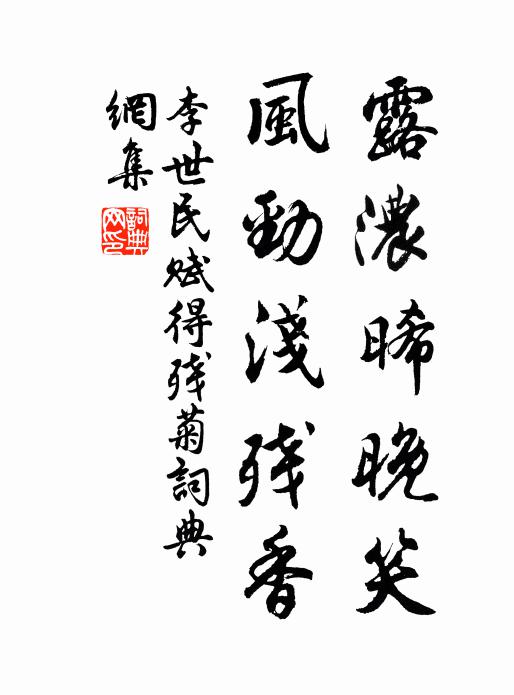 露濃晞晚笑
風勁淺殘香
李世民賦得殘菊詞典
網集
詞典
网印